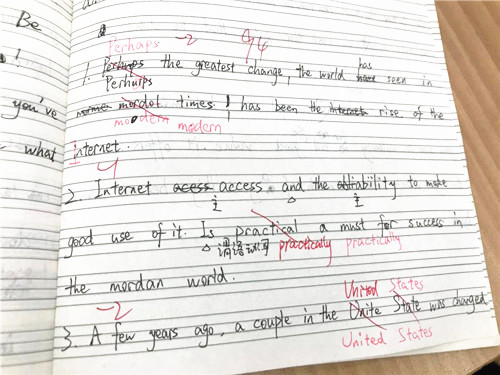 Be
Perhaps -2 4
1. Perhaps the greatest change, the world has seen in
Perhurps
you've
mordot times, has been the internet rise of the
modern modern
what
internet.
2. Internet acess access and the ability to make
good use of it. Is practical a must for success in
practically practically
the mordan world.
-2
United States
3. A few years ago, a couple in the Unite State was charged
United States